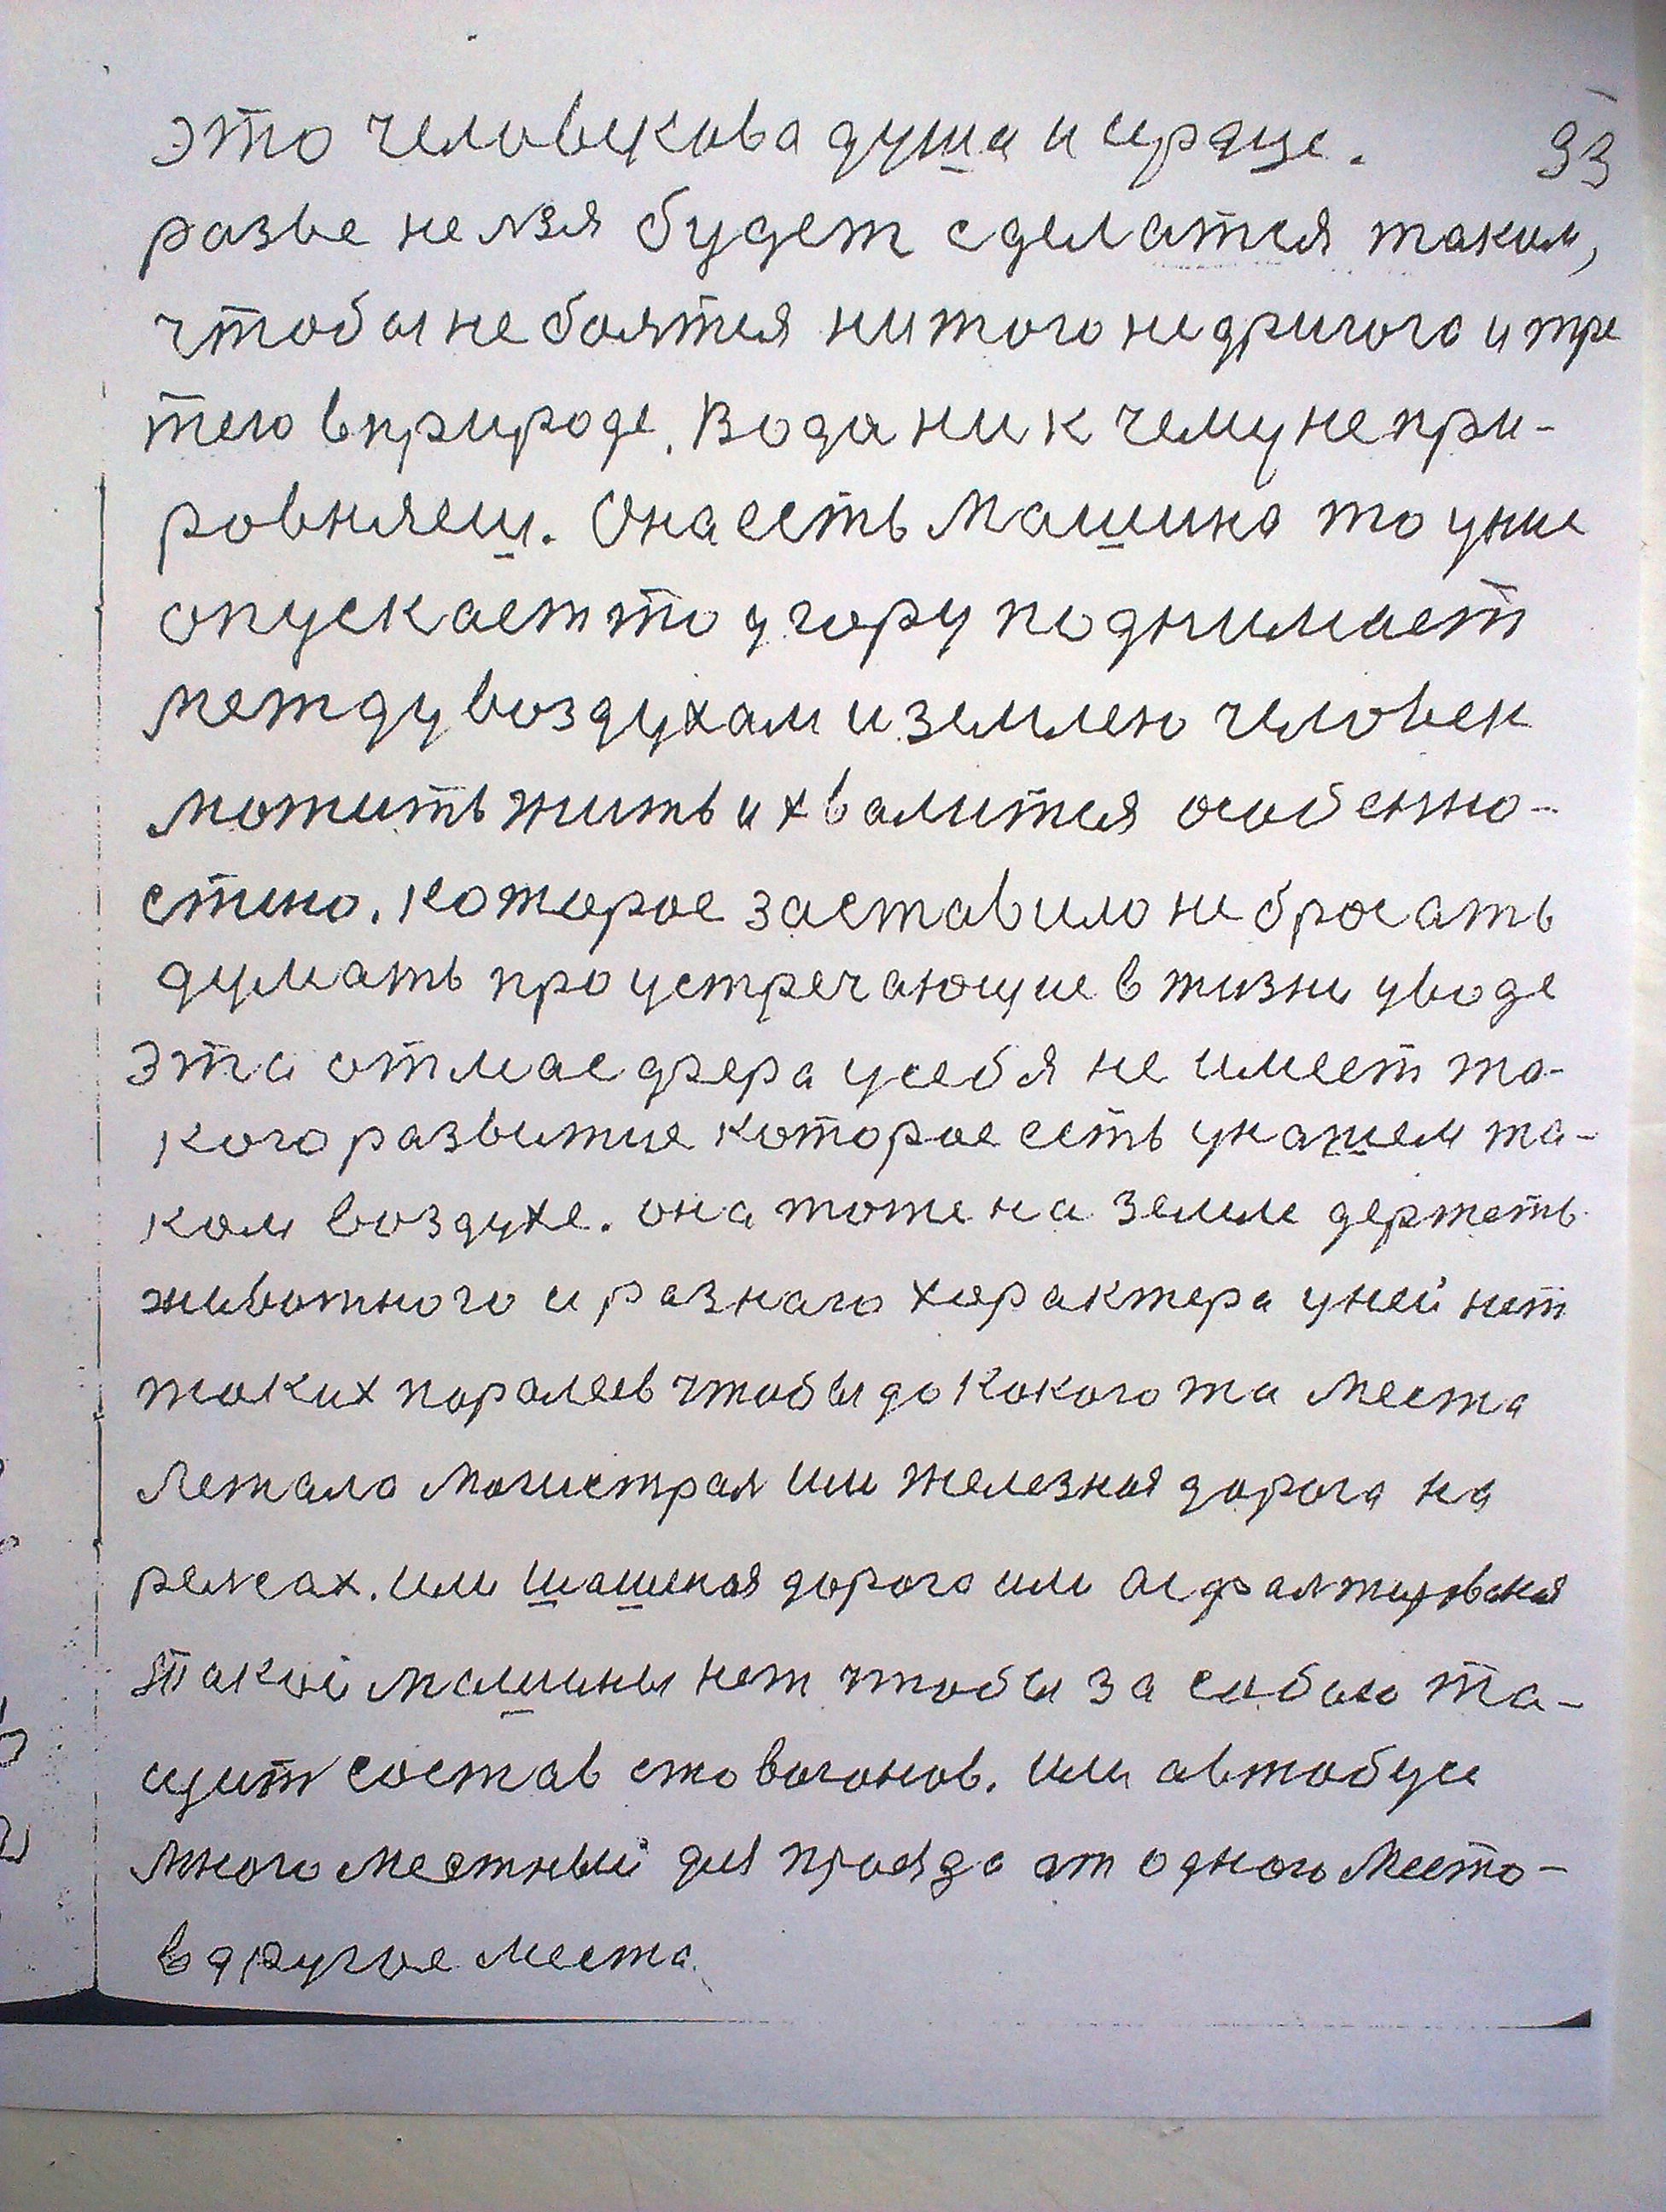 это человекова душа и сердце.
93
разве нелзя будет сделатся таким,
чтобы не боятся ни того не другого и тре
тего в природе. Вода ни к чему не при-
ровняеш. Она есть машина то уние
опускает то угору поднимает
между воздухам и землею человек
можить жить и хвалится особенно-
стию. которое заставило не бросать
думать про устречающие в жизни уводе
Эта отмасфера у себя не имеет та-
кого развитие которое есть у нашем та-
ком воздухе. она тоже на земле держеть
животного и разнаго характера у ней нет
таких паралеев чтобы до какого та места
Летало магистрал или железная дорога на
релсах. или шашеная дорога или асфалтировская
Такой машины нет чтобы за собою та-
щит состав сто вагонов. или автобус
много местный для проязда от одного место-
в другое места.